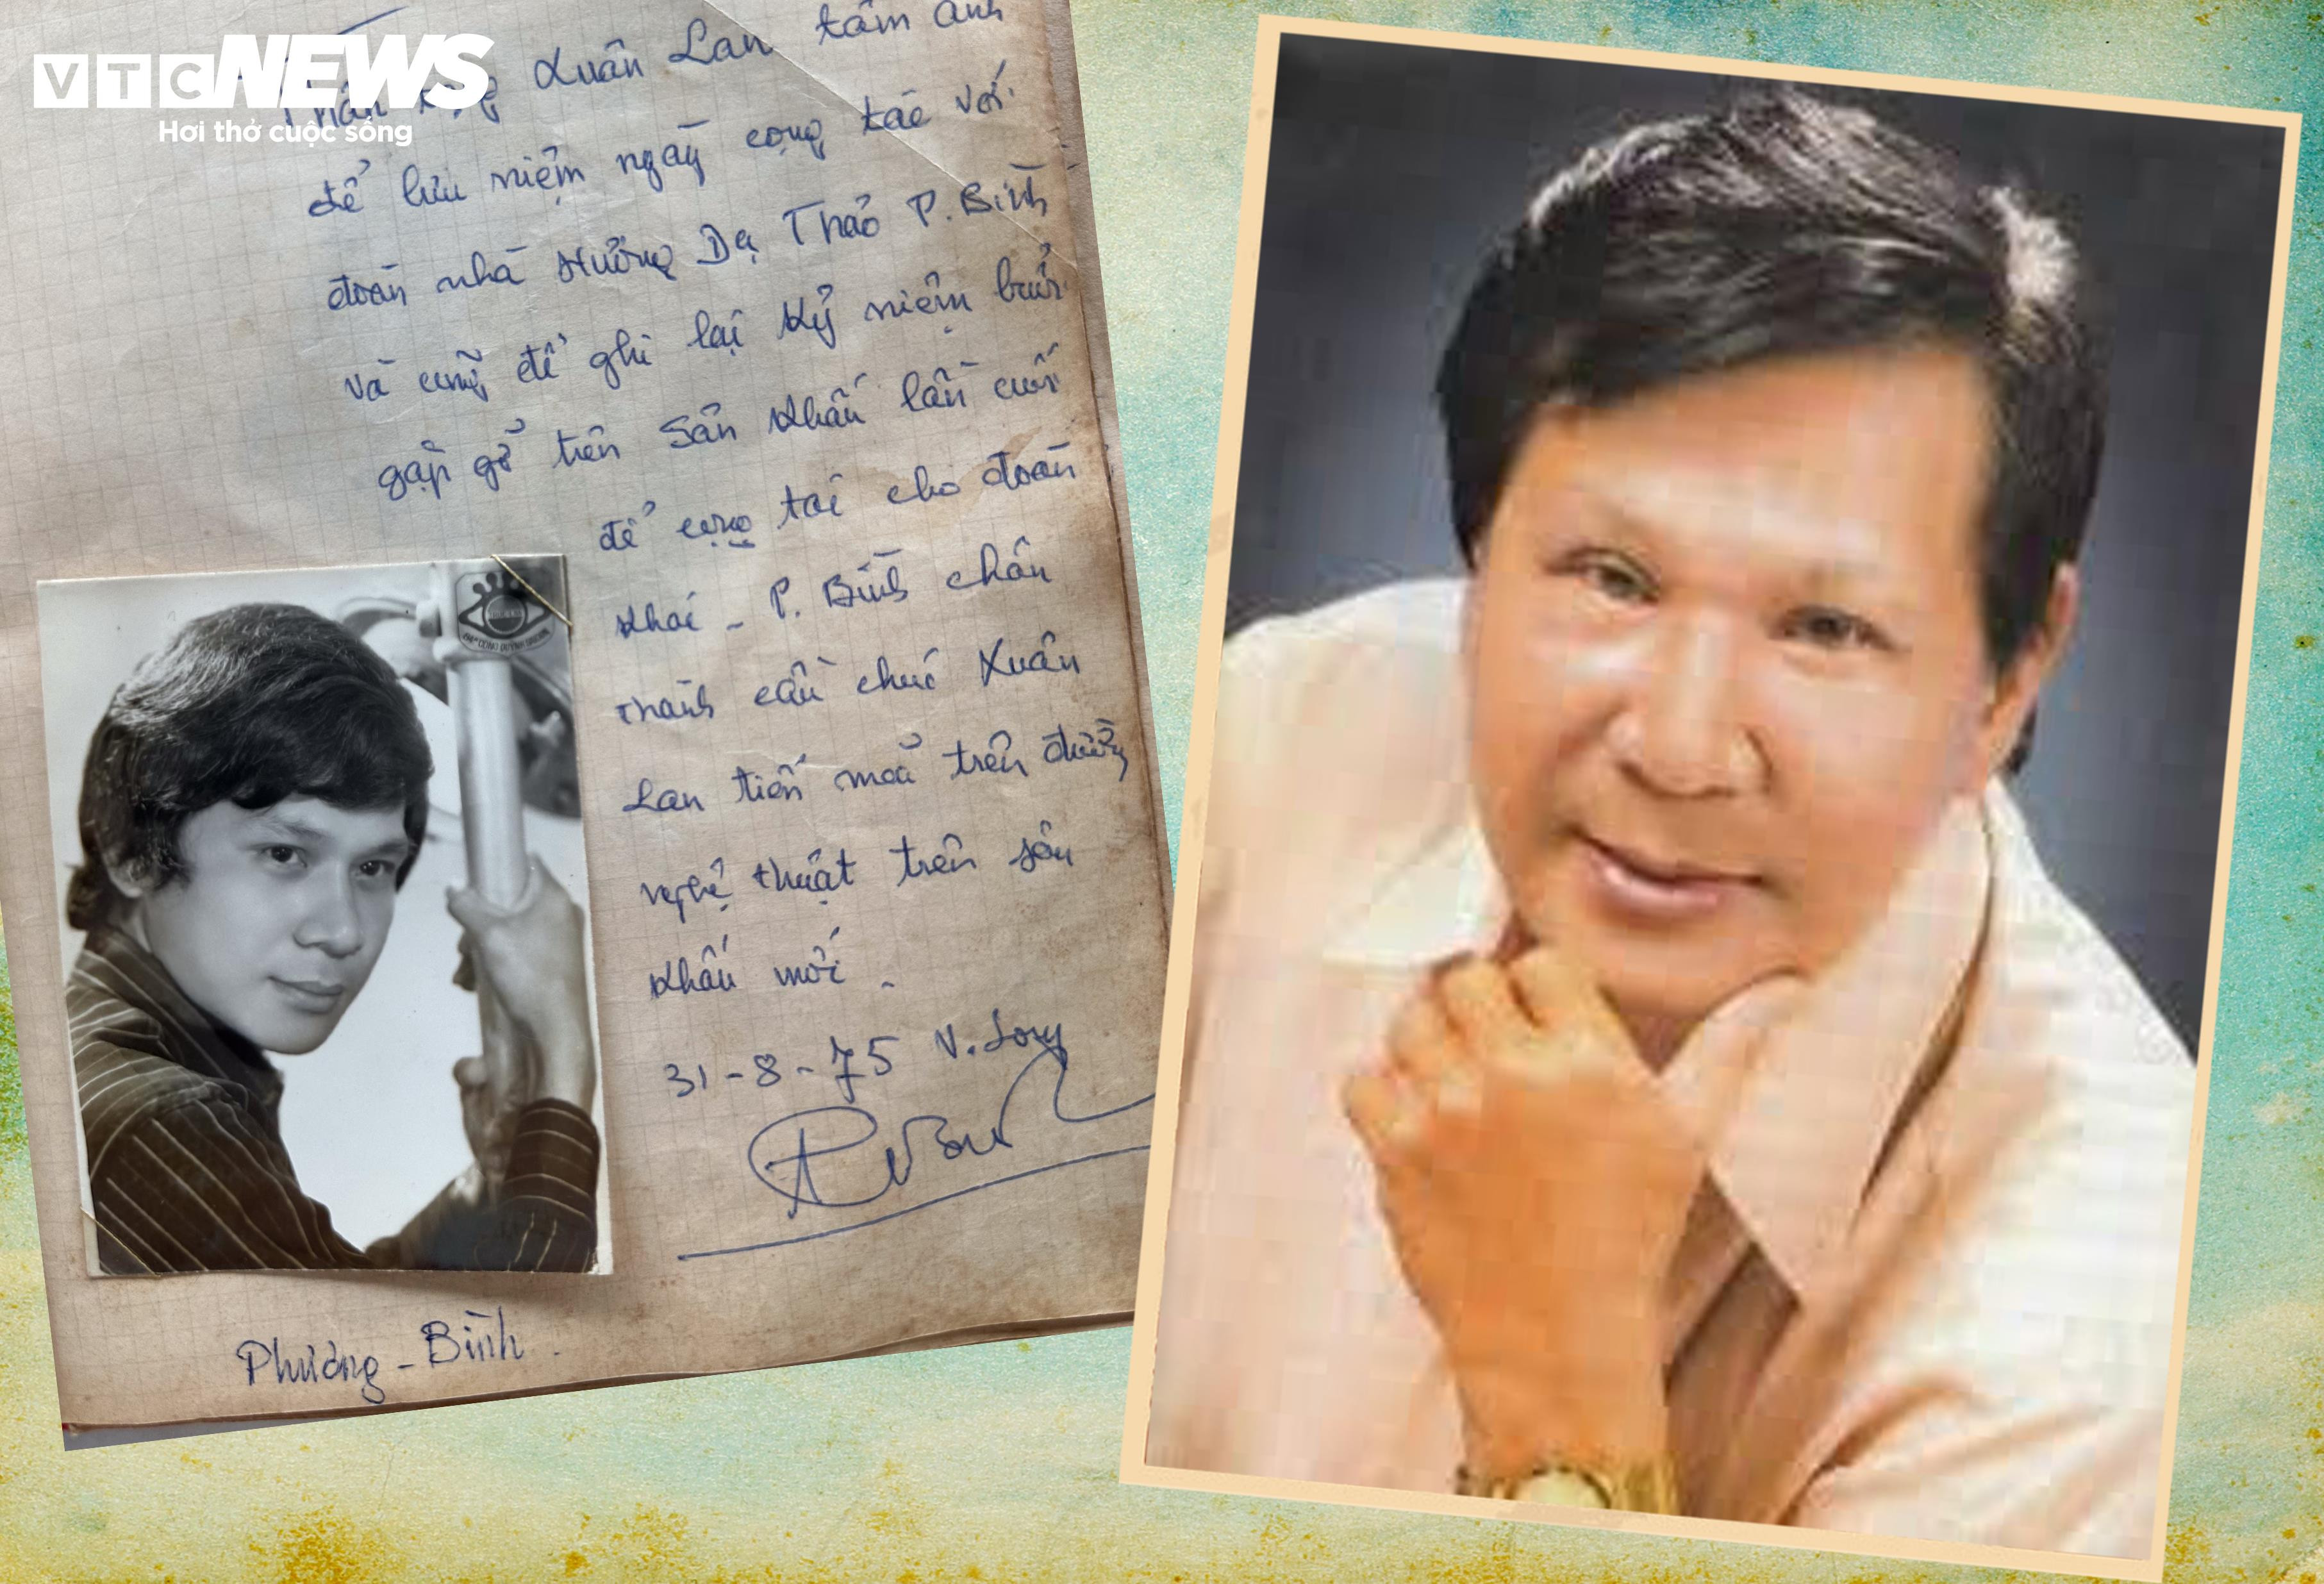 VTC NEWS
Hơi thở cuộc sống
Xuân Lan tấm ảnh
để lưu niệm ngày cộng tác với
đoàn nhà Hương Dạ Thảo P. Bình
và cũng để ghi lại kỷ niệm buổi
gặp gỡ trên sân khấu lần cuối
để cộng tác cho đoàn
khác - P. Bình chân
thành cầu chúc Xuân
Lan tiến mãi trên đường
nghệ thuật trên sân
khấu mới.
31-8-75 V. Long
Phương - Bình.